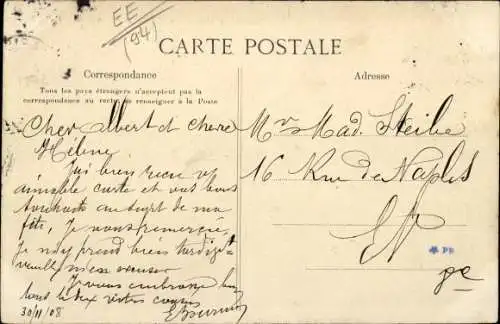 EE
(94)
CARTE POSTALE
Correspondance
Tous les pays étrangers n'acceptent pas la
correspondance au recto, se renseigner à la Poste
Adresse
Cher Albert et chère
Hélène
J'ai bien reçu v/
aimable carte et vos bons
souhaits au sujet de ma
fête, je vous remercie,
je m'y prend bien tardive
veuillez m'en excuser
Je vous embrasse bien
tous les deux votre cousin
30/11/08
Mr & Mad. Steibe
16 Rue de Naples
EV